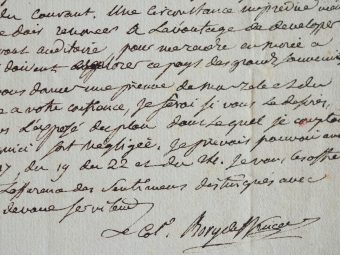 du courant. Une circonstance imprévue
dois renoncer à l'avantage de developper
vost auditoire, pour me rendre en morée a
doivent explorer ce pays des grands souvenirs
vous donner une preuve de mon zele et du
a votre confiance, je ferai si vous le desirez,
L'exposé du plan dans lequel je comptais
ici fort négligée. Je prevais pouvoir
17, du 19 du 22 et du 24. Je vous les offre
L'assurance des sentimens distingués avec
devoué serviteur
Le Col. Bory de St Vincent